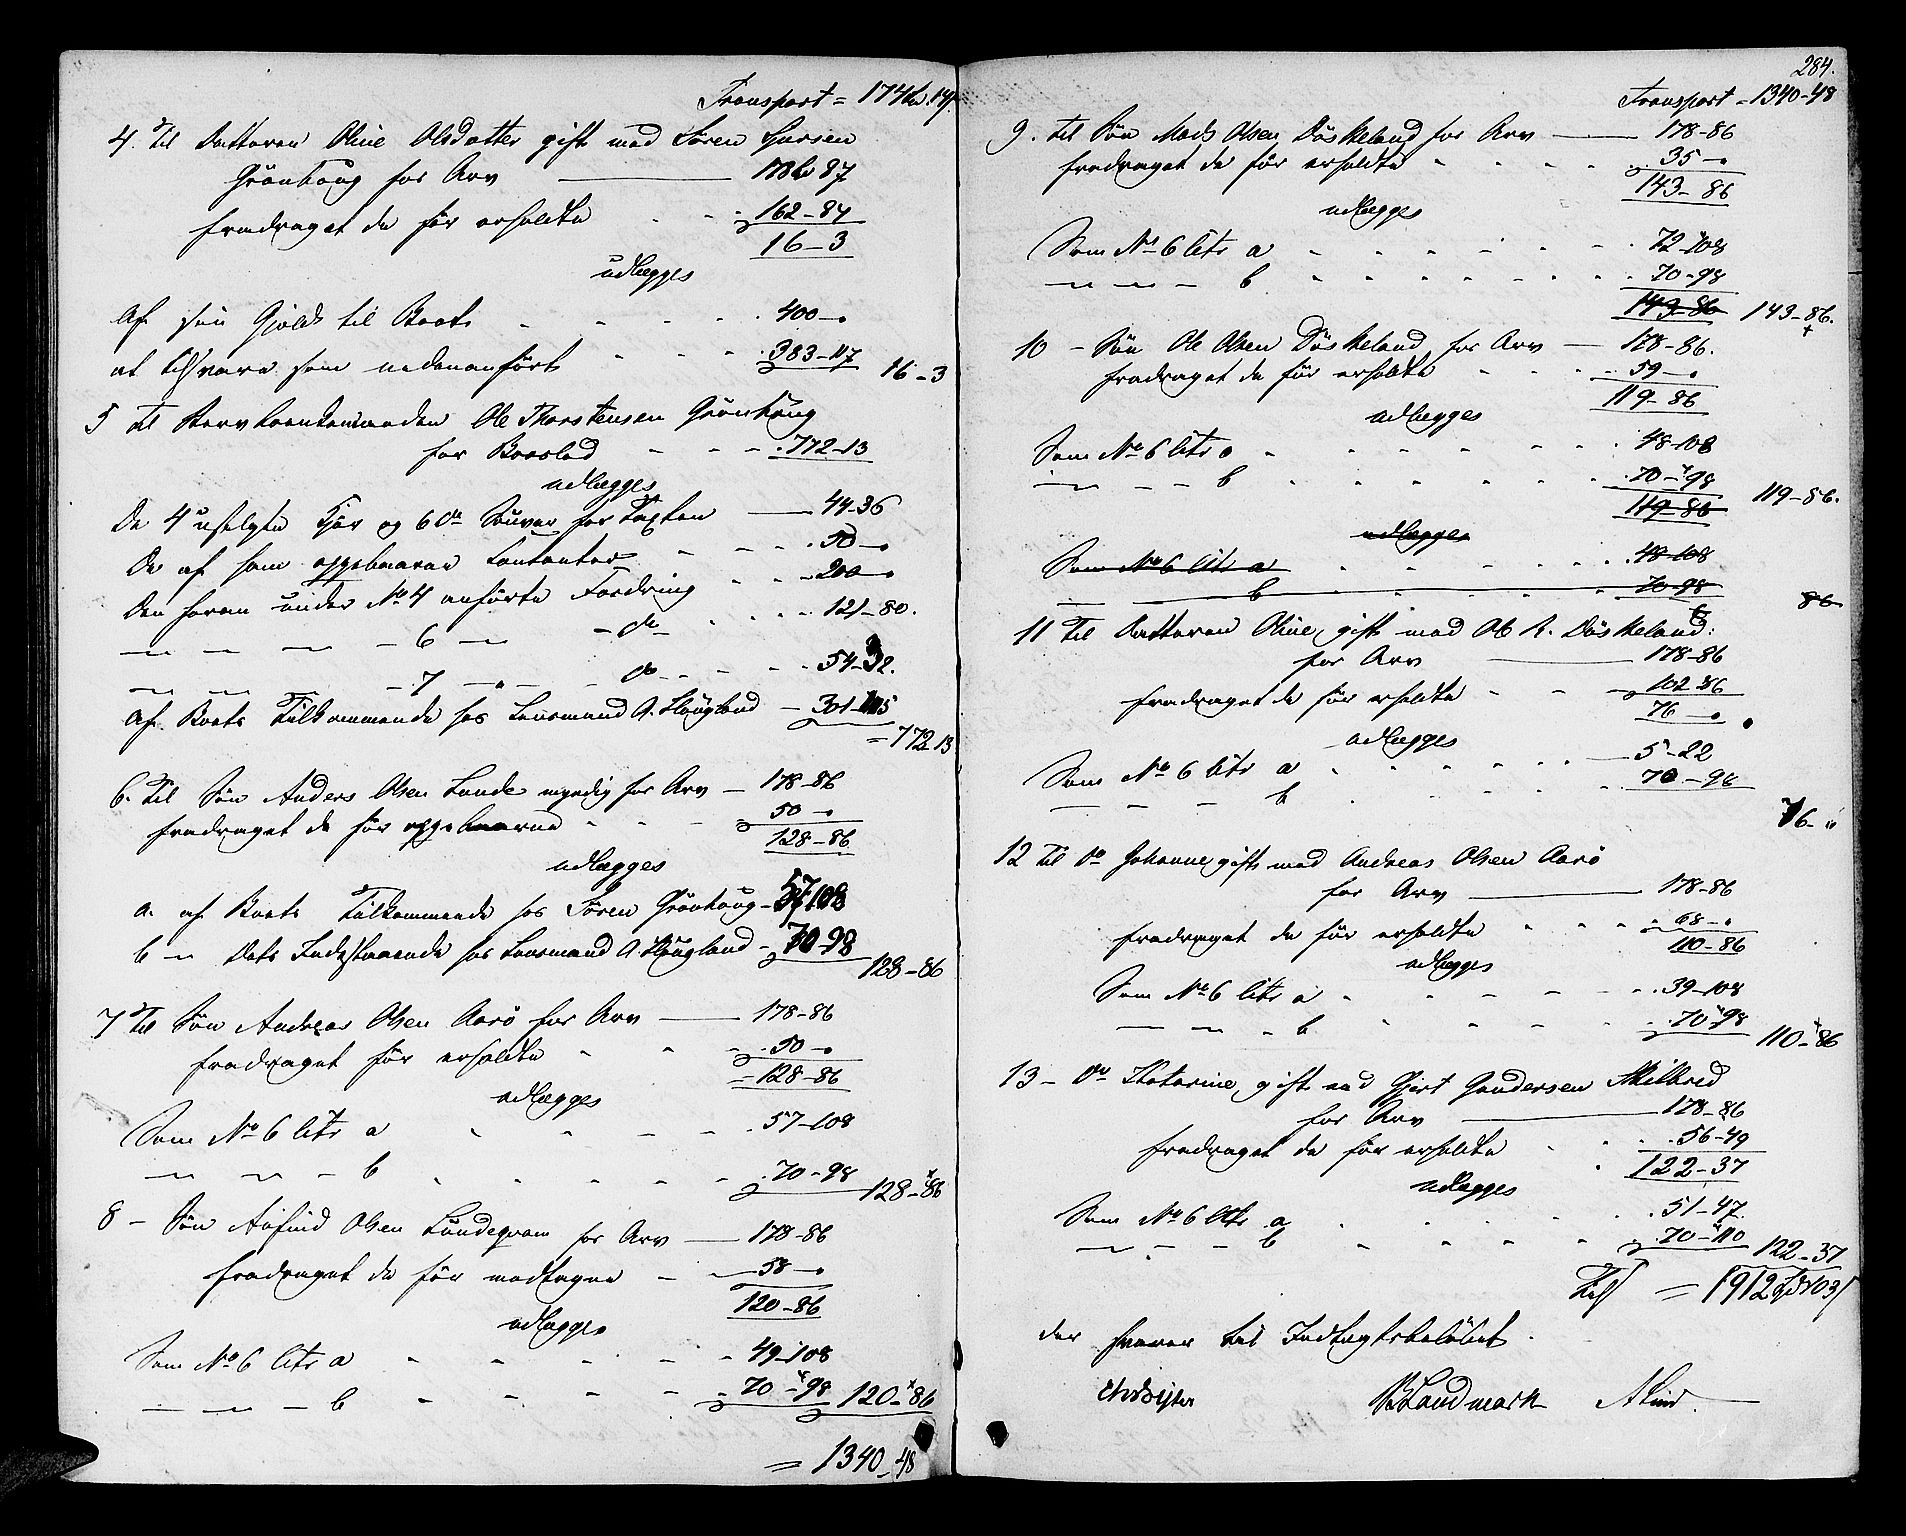 Transport = 174
4. Til Datteren Oline Olsdatter gift med Søren Larsen
Grönhoug for Arv 178 87
fradraget de før erholdte 162-84
16-3
udlægges
Af sin Gjæld til Boet 400-"
at tilsvare som nedenanført 383-117 16-3
5 Til Ole Thorstensen Grönhoug
for Boeslod 772-13
udlægges
De 4 usolgte Kjør og 6 do Souver for Taxten 44-36
De af ham oppebaarne Contanter 50-"
Den foran under No 4 anførte Fordring 200-"
" " " 6 " - do 121-80.
" " " 7 " - do 54-32.
Af Boets Tilkommende hos Lensmand A. Høugland 301-105
= 772 13
6. Til Søn Anders Olsen Lunde myndig for Arv - 178-86
fradraget de før oppebaarne 50-"
128-86
udlægges
a. af Boets Tilkommende hos Søren Grönhoug - 57 108
b " Dets Indestaaende hos Lensmand A. Høugland - 70-98
128-86
7 Til Søn Andreas Olsen Aarö for Arv 178-86
fradraget før erholdte 50-"
= 128-86
udlægges
Som No 6 litr a 57-108
" " - b 70-98 128-86
8 - Søn Olsen for Arv 178-86
fradraget de før modtagne 58-"
120-86
udlægges
Som No 6 litr a 49-108
" " - b 70-98 120-86
= 1340-48
284.
Transport - 1340-48
9. til Søn Mads Olsen Döskeland for Arv 178-86
fradraget de før erholdte 35-"
143-86
udlægges
Som No 6 litr a 72-108
" " - b 70-98
143-86 143-86.
10 - Søn Ole Olsen Döskeland for Arv 178-86.
fradraget de før erholdte 59-"
119-86
udlægges
Som No 6 litr a 48-108
" - - b 70-98
119-86 119-86.
udlægges
Som No 6 litr a 48-108
b 70-98
86
11 Til Datteren Oline gift med Ole R. Döskeland:
for Arv 178-86
fradraget de før erholdte 102 86
76-"
udlægges
Som No 6 litr a 5-22
" - - b 70-98
76-"
12 til do Johanne gift med Andreas Olsen Aarö
for Arv 178-86
fradraget de før erholdte 68-"
110-86
udlægges
Som No 6 litr a 39-108
" " - b 70-98
110-86
13 - do Katarine gift med Gjert Gundersen
for Arv 178-86
fradraget de før erholdte 56-49
122-37
udlægges
Som No 6 litr a 51-47
" - - b 70-110 122-37
= 1912
der svarer til Indtægtsbeløbet.
Landmark